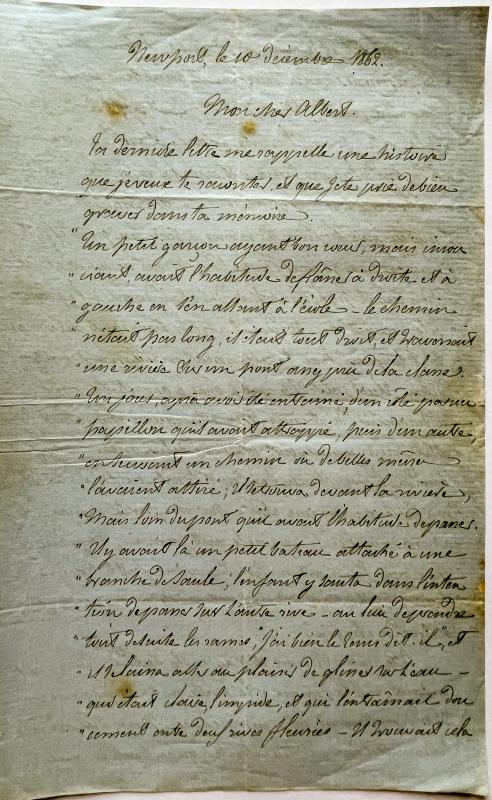 Newport, le 10 décembre 1862.
Mon cher Albert.
Ta dernière lettre me rappelle une histoire
que je veux te raconter, et que je te prie de bien
graver dans ta mémoire.
" Un petit garçon ayant bon cœur, mais insou
" ciant, avait l'habitude de flâner à droite et à
" gauche en s'en allant à l'école – le chemin
" n'était pas long, il était tout droit, et traversait
" une rivière sur un pont assez près de la classe.
" Un jour, après avoir été entraîné, d'un côté par un
" papillon qu'il avait attrappé, puis d'un autre
" en suivant un chemin où de belles mûres
" l'avaient attiré, il se trouva devant la rivière,
" Mais loin du pont qu'il avait l'habitude de passer.
" Il y avait là un petit bateau attaché à une
" branche de saule ; l'enfant y sauta dans l'inten
" tion de passer sur l'autre rive – au lieu de prendre
" tout de suite les rames, "j'ai bien le tems dit-il", et
" il se laissa aller au plaisir de glisser sur l'eau –
" qui était claire, limpide, et qui l'entraînait dou
" cement entre deux rives fleuries – Il trouvait cela